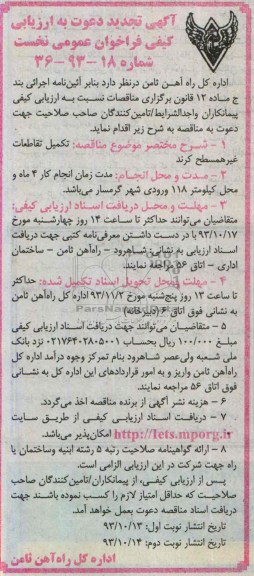 آگهی تجدید دعوت به ارزیابی
کیفی فراخوان عمومی نخست
شماره ۱۸-۹۳-۳۶
اداره کل راه آهن ثامن درنظر دارد بنابر آئین‌نامه اجرائی بند
ج ماده ۱۲ قانون برگزاری مناقصات نسبت به ارزیابی کیفی
پیمانکاران واجدالشرایط/تامین‌کنندگان صاحب صلاحیت جهت
دعوت به مناقصه به شرح زیر اقدام نماید.
۱- شرح مختصر موضوع مناقصه: تکمیل تقاطعات
غیرهمسطح کرند
۲- مدت و محل انجام: مدت زمان انجام کار ۴ ماه و
محل کیلومتر ۱۱۸ ورودی شهر گرمسار می‌باشد.
۳- مهلت و محل دریافت اسناد ارزیابی کیفی:
متقاضیان می‌توانند حداکثر تا ساعت ۱۴ روز چهارشنبه مورخ
۹۳/۱۰/۱۷ با در دست داشتن معرفی‌نامه کتبی جهت دریافت
اسناد ارزیابی به نشانی: شاهرود - راه‌آهن ثامن - ساختمان
اداری - اتاق ۵۶ مراجعه نمایند.
۴- مهلت و محل تحویل اسناد تکمیل شده: حداکثر
تا ساعت ۱۳ روز پنج‌شنبه مورخ ۹۳/۱۱/۲ اداره کل راه‌آهن ثامن
به نشانی فوق اتاق ۶ (دبیرخانه)
۵- متقاضیان می‌توانند جهت دریافت اسناد ارزیابی کیفی
مبلغ ۱۰۰/۰۰۰ ریال بحساب ۰۲۱۷۶۴۰۲۸۵۰۰۱ نزد بانک
ملی شعبه ولی‌عصر شاهرود بنام تمرکز وجوه درآمد اداره کل
راه‌آهن ثامن واریز و به امور قراردادهای این اداره کل به نشانی
فوق اتاق ۵۶ مراجعه نمایند.
۶- هزینه نشر آگهی از برنده مناقصه اخذ می‌گردد.
۷- دریافت اسناد ارزیابی کیفی از طریق سایت
http://Iets.mporg.ir امکان‌پذیر می‌باشد.
۸- ارائه گواهینامه صلاحیت رتبه ۵ رشته ابنیه وساختمان یا
راه جهت شرکت در این ارزیابی الزامی است.
پس از ارزیابی کیفی، از پیمانکاران/تامین‌کنندگان صاحب
صلاحیت که حداقل امتیاز لازم را کسب نموده باشند جهت
دریافت اسناد مناقصه دعوت بعمل خواهد آمد.
تاریخ انتشار نوبت اول: ۹۳/۱۰/۱۳
تاریخ انتشار نوبت دوم: ۹۳/۱۰/۱۴
اداره کل راه‌آهن ثامن